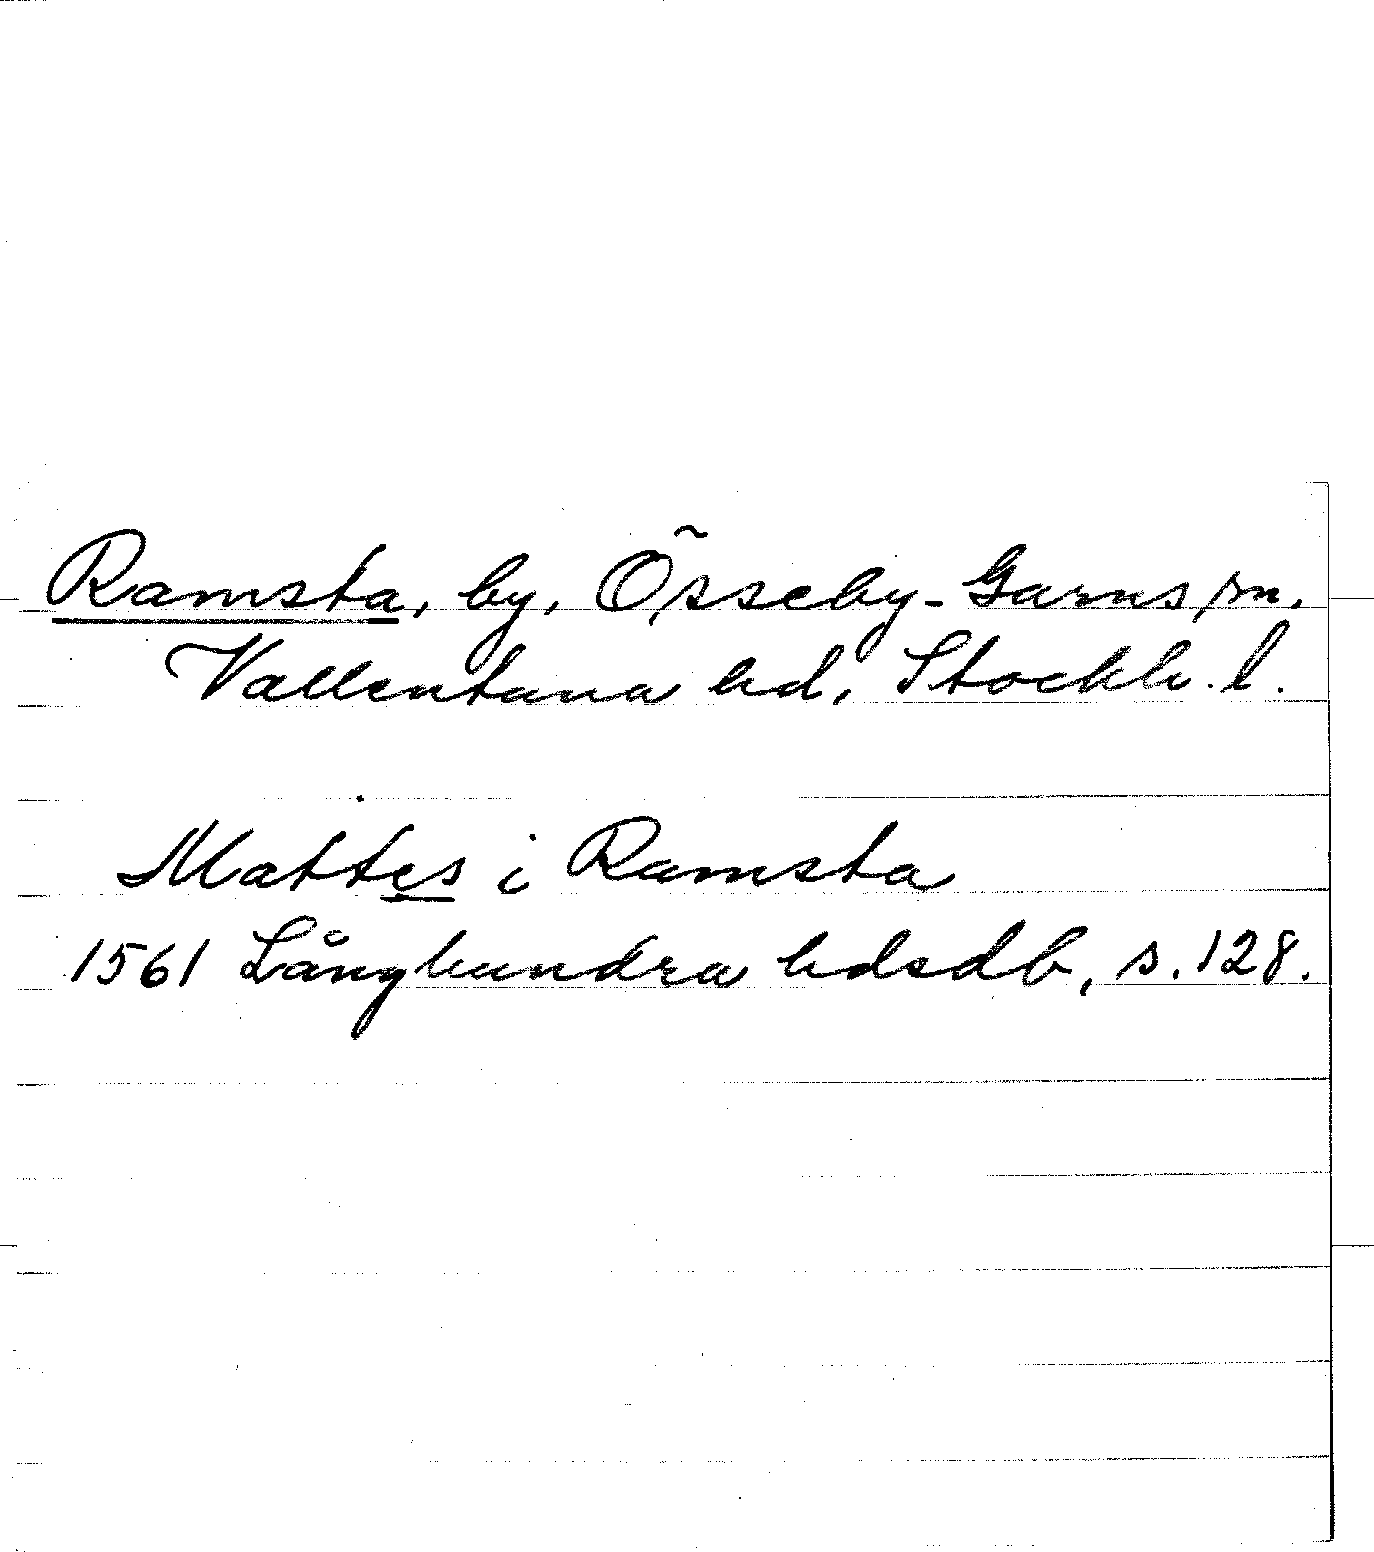 Ramsta, by, Össeby-Garns sn.
Vallentuna hd, Stockh. l.
Mattes i Ramsta
1561 Långhundra hdsdb, s. 128.